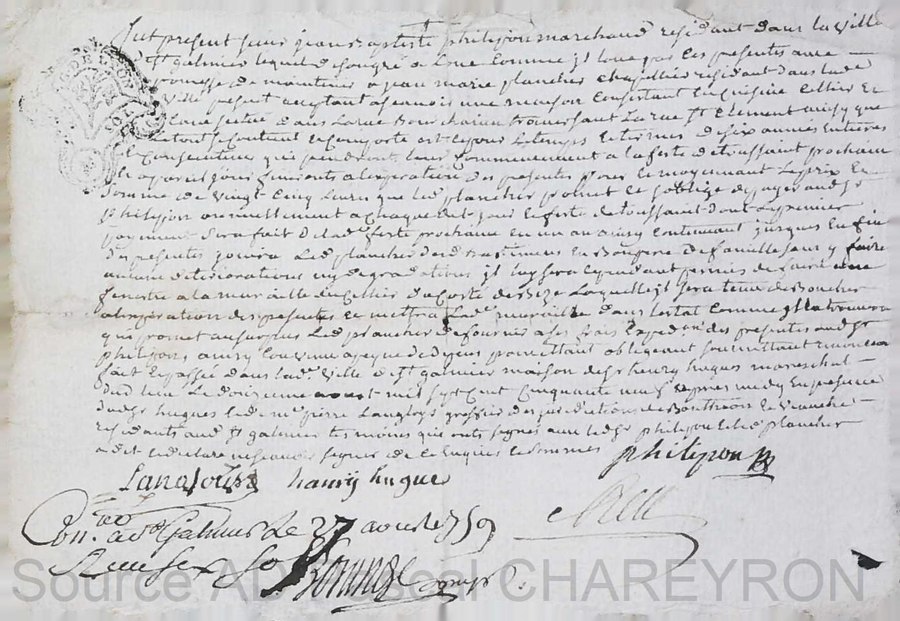 Fut present sieur jean baptiste philipon marchand residant dans la ville
de St galmier lequel de son gré a loué comme jl loue par ces presentes avec
promesse de maintenir a jean marie plancher chapellier residant dans lade
ville present acceptant a scavoir une maison consistant en cuisine cellier et
dans la rue St Clement ainsy que
le tout se contient et comporte est ce pour le temps et terme de six années entieres
et consecutives qui prendront leur commencement a la feste de toussaint prochaine
et a pareil jour finiront a l'expiration des presentes pour et moyennant le prix et
somme de vingt cinq livres que led plancher promet et s'oblige de payer aud sr
philipon annuellement a chaque jour et feste de toussaint dont le premier
payement sera fait de lade feste prochaine en un an ainsy continuant jusques en fin
des presentes jouira led plancher desd bastiments en bon pere de famille sans y faire
aucune deteriorations ny degradations jl luy sera cependant permis de faire une
fenestre a la muraille du cellier du costé de bize laquelle jl sera tenu de boucher
a l'expiration des presentes et mettra lade muraille dans l'estat comme jl la trouvera
qui promet au surplus led plancher de fournir a ses frais expedon des presentes aud sr
philipon ainsy convenu a peyne de depens promettant obligeant soumettant renonceant
fait et passé dans lade ville de St galmier maison de sr henry hugues mareschal
dud lieu le douzieme aoust mil sept cent cinquante neuf apres midy en presence
dud sr hugues et de me pierre langloys greffier des jurisdictions de
residants aud St galmier temoins qui onts signés avec led sr philipon et led plancher
a dit et declaré ne scavoir signer de ce enquis et sommé
philipon
Langlois henry hugue
Conlé a St Galmier Le 27 aoust 1759
Receu six s